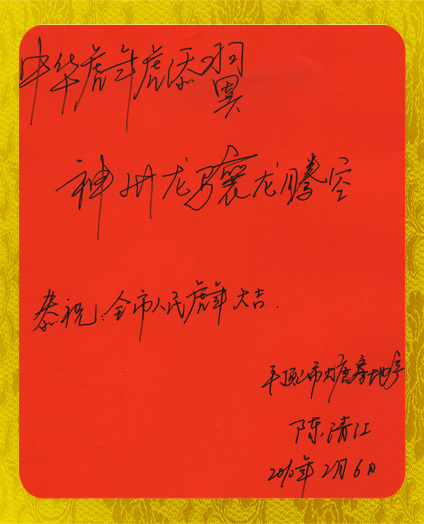 中华虎年虎添翼
神州龙骧龙腾空
恭祝:全市人民虎年大吉.
平顶山市大唐李地序
陈清江
2010年2月6日